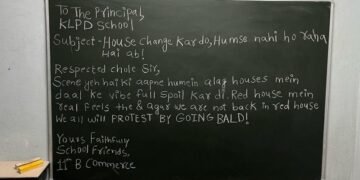 To The Principal,
KLPD School
Subject - House Change Kar do, Humse nahi ho raha
hai ab!
Respected chote Sir,
Scene yeh hai ki aapne humein alag houses mein
daal ke vibe full spoil kar di. Red house mein
real feels the & agar we are not back in red house
we all will PROTEST BY GOING BALD!
Yours Faithfully
School Friends,
11th B Commerce